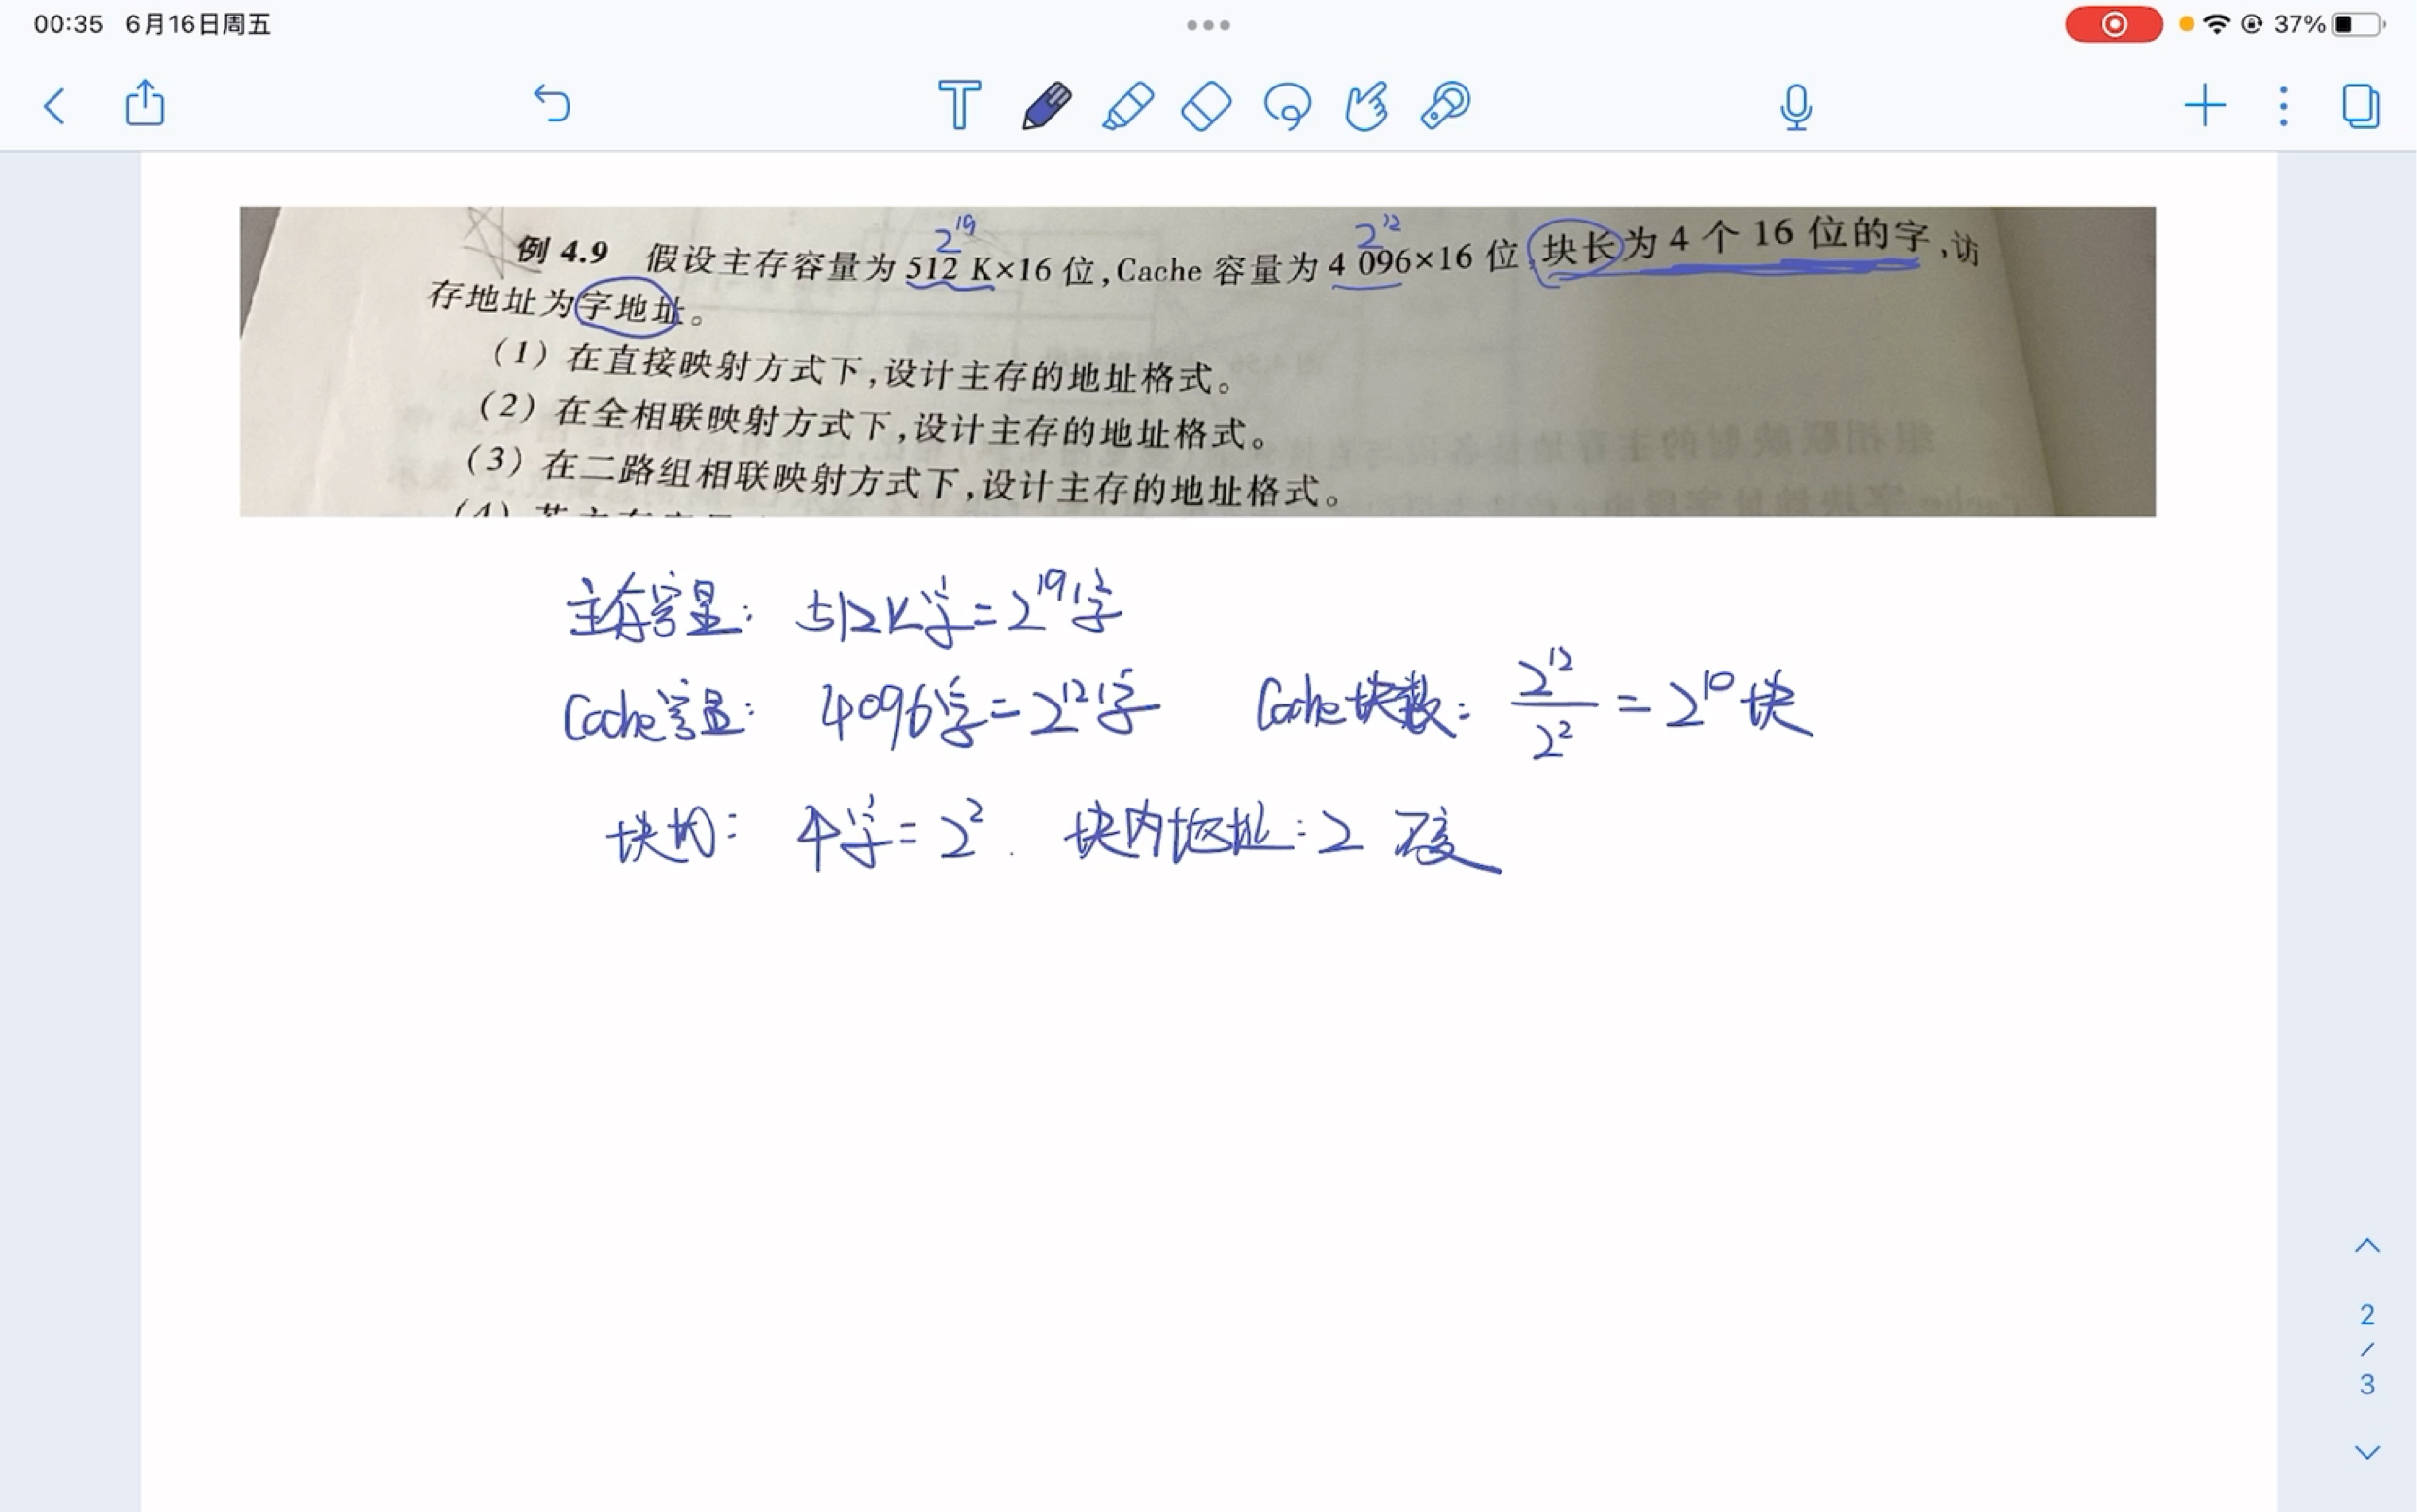 00:35 6月16日周五
37%
2^19 2^12
例 4.9 假设主存容量为 512 K×16 位,Cache 容量为 4 096×16 位,块长为 4 个 16 位的字,访
存地址为字地址。
(1) 在直接映射方式下,设计主存的地址格式。
(2) 在全相联映射方式下,设计主存的地址格式。
(3) 在二路组相联映射方式下,设计主存的地址格式。
主存容量: 512K字=2^19字
Cache容量: 4096字=2^12字 Cache块数: 2^12/2^2 = 2^10块
块内: 4字=2^2. 块内地址:2 不变
2
/
3